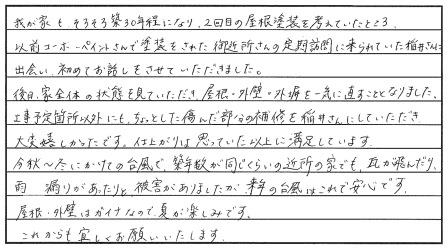 我が家も、そろそろ築30年程になり、2回目の屋根塗装を考えていたところ、
以前ユーホーペイントさんで塗装をされた御近所さんの定期訪問に来られていた稲井さんに
出会い、初めてお話しをさせていただきました。
後日、家全体の状態を見ていただき、屋根・外壁・外塀を一気に直すことになりました。
工事予定箇所以外にも、ちょっとした傷んだ部分の補修を稲井さんにしていただき
大変嬉しかったです。仕上がりは思っていた以上に満足しています。
今秋〜冬にかけての台風で、築年数が同じぐらいの近所の家でも、瓦が飛んだり、
雨 漏りがあたりと、被害がありましたが、来年の台風はこれで安心です。
屋根・外壁はガイナなので、夏が楽しみです。
これからも宜しくお願いいたします。